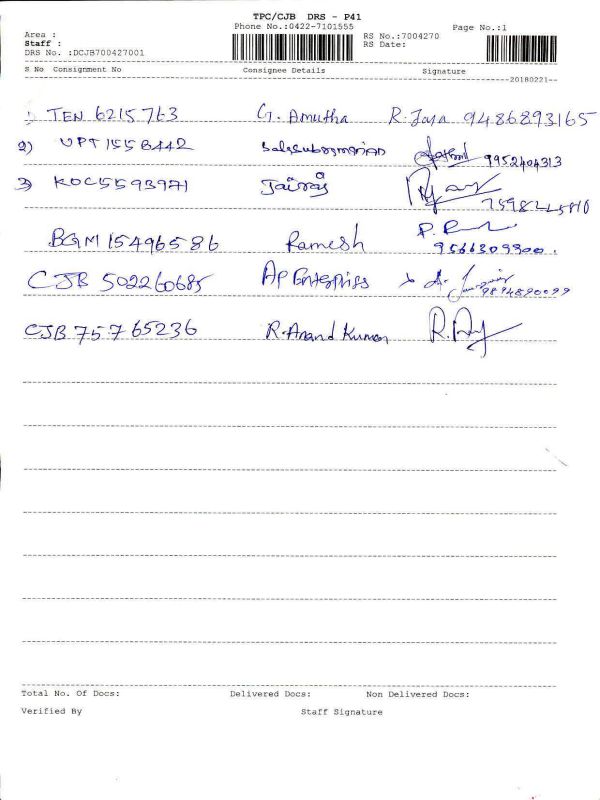 TPC/CJB DRS - P41
Phone No.:0422-7101555
Page No.:1
Area :
RS No.:7004270
Staff :
RS Date:
DRS No. :DCJB700427001
S No Consignment No Consignee Details Signature
20180221
1) TEN 6215763 G. Amutha R. Jaya 9486893165
2) UPT 1558442 balasubramanian 9952404313
3) KOC5593971 Jairaj
BGM 15496586 Ramesh P. R
9566309300.
CJB 502260685 Ap Enterprises 9894890099
CJB 75765236 R. Anand Kumar
Total No. Of Docs: Delivered Docs: Non Delivered Docs:
Verified By Staff Signature